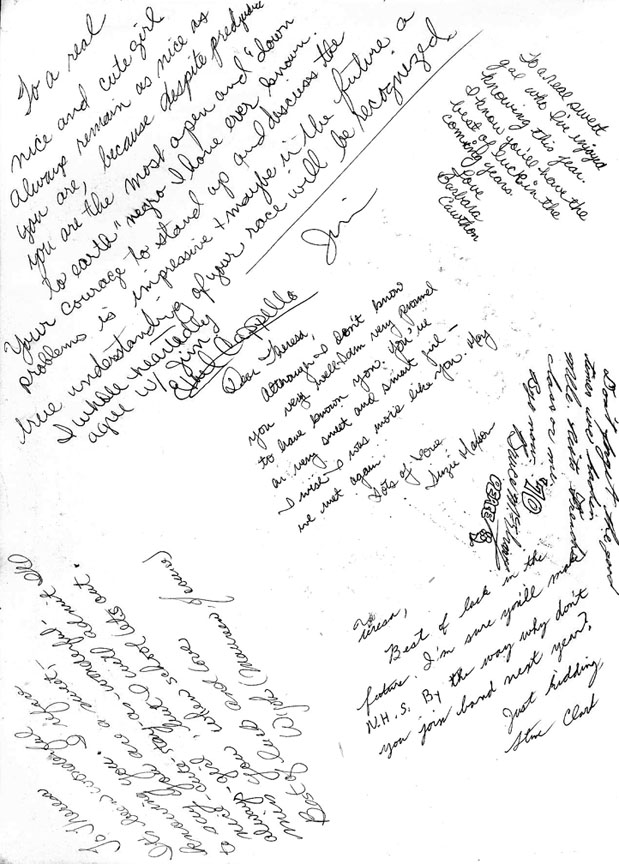 To a real
nice and cute girl
Always remain as nice as
you are, because despite predjudice
you are the most open and "down
to earth" negro I have ever known.
Your courage to stand up and discuss the
problems is impressive & maybe in the future a
true understanding of your race will be recognized.
Jim
I whole heartedly
agree w/ Jim
Cappello
To a real sweet
gal who I've enjoyed
knowing this year.
I know you'll have the
best of luck in the
coming years.
Love
Barbara
Cawthon
Dear Theresa,
Although I don't know
you very well I am very proud
to have known you. You're
a very sweet and smart girl—
I wish I was more like you. May
we met again.
Lots of love
Suzie
Don't forget the good
times we had in
Mlle. French
class or me.
Bye now.
Bruce
PEACE
To
Teresa,
Best of luck in the
future. I'm sure you'll make
N.H.S. By the way why don't
you join band next year?
Just kidding
Steve Clark
To Theresa
It's been wonderful
knowing you. You are a sweet,
nice, cute girl stay as wonderful
always
miss you when school lets out.
Best of luck and love